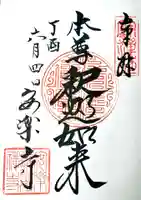 奉拝
本尊釈迦如来
丁酉
六月四日安楽寺